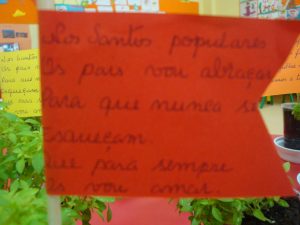 Nos Santos populares
Os pais vou abraçar
Para que nunca se
esqueçam.
Que para sempre
os vou amar.